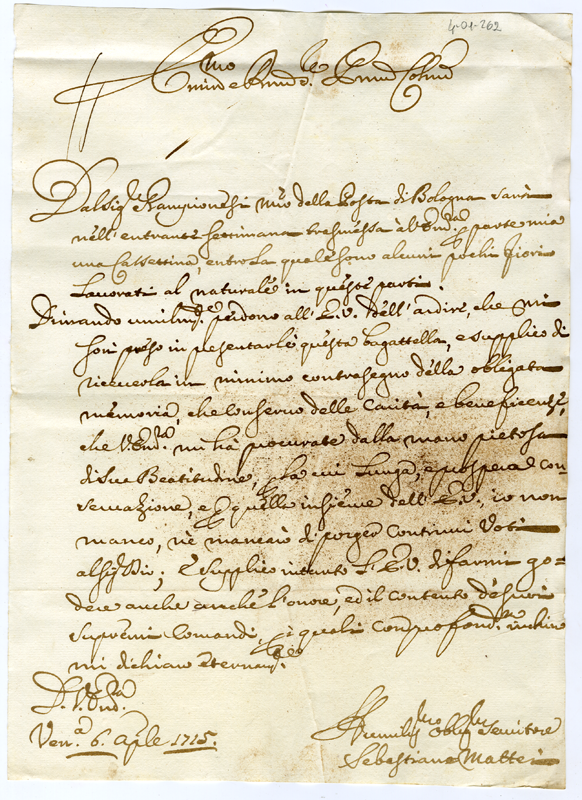 4-01-262
Em.mo e R.mo Sig.re Pron Col.mo
Dal Sig.r Rampionesi M.ro della Posta di Bologna sarà
nell'entrante settimana trasmessa à V. Em.za p parte mia
una Cassettina, entro la quale sono alcuni pochi fiori
Lavorati al naturale in queste parti.
umilm.te perdono all'E.V. dell'ardire, che mi
son preso in presentarle questa bagattella, e supplico di
riceverla in minimo contrasegno della obligata
memoria, che conservo delle Carità, e beneficenze,
che V. Em.za mi hà procurate dalla mano pietosa
di Sua Beatitudine, p la cui lunga, e prospera con-
servazione, e p quella insieme dell'E.V., io non
manco, nè mancarò di porger continui Voti
al Sig.r Dio; E supplico intanto l'E.V. di farmi go-
dere anche l'onore, ed il contento de suoi
supremi Comandi, p i quali con profond.mo inchino
mi dichiaro eternam.te
D. V. Em.za
Ven.a 6. Aple 1715.
Humilis.mo Oblig.mo Servitore
Sebastiano Mattei